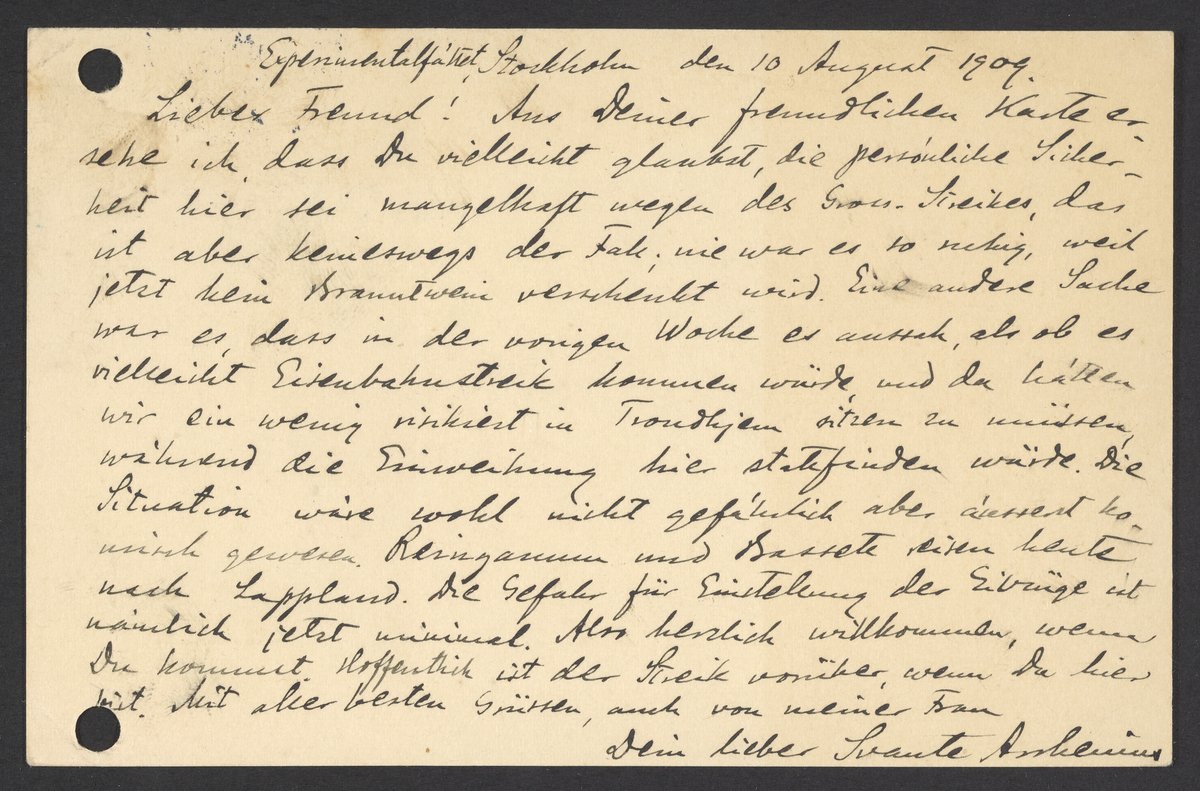 Experimentalfältet, Stockholm den 10 August 1909.
Lieber Freund! Aus Deiner freundlichen Karte er-
sehe ich, dass Du vielleicht glaubst, die persönliche Sicher-
heit hier sei mangelhaft wegen des Gross-Streikes, das
ist aber keineswegs der Fall; nie war es so ruhig, weil
jetzt kein Branntwein verschenkt wird. Eine andere Sache
war es, dass in der vorigen Woche es aussah, als ob es
vielleicht Eisenbahnstreik kommen würde, und da hätten
wir ein wenig risikiert in Trondhjem sitzen zu müssen,
während die Einweihung hier stattfinden würde. Die
Situation wäre wohl nicht gefährlich aber äussert ko-
misch gewesen. Reinganum und Bassett reisen heute
nach Lappland. Die Gefahr für Einstellung der Eilzüge ist
nämlich jetzt minimal. Also herzlich willkommen, wenn
Du kommst. Hoffentlich ist der Streik vorüber, wenn Du hier
bist. Mit aller besten Grüssen, auch von meiner Frau
Dein lieber Svante Arrhenius